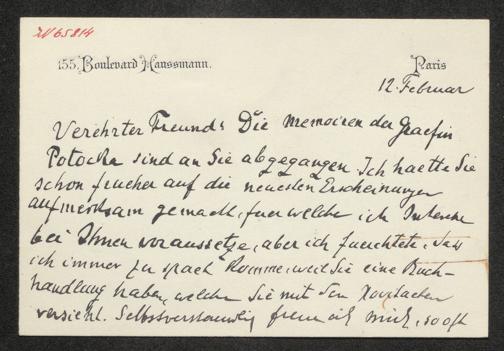 IV 65814
155, Boulevard Haussmann.
Paris
12. Februar
Verehrter Freund: Die Memoiren der Graefin
Potocka sind an Sie abgegangen. Ich haette Sie
schon frueher auf die neuesten Erscheinungen
aufmerksam gemacht, fuer welche ich Interesse
bei Ihnen voraussetze, aber ich fuerchtete, dass
ich immer zu spaet komme, weil Sie eine Buch-
handlung haben, welche Sie mit den
versieht. Selbstverstaendlig freue ich mich, so oft